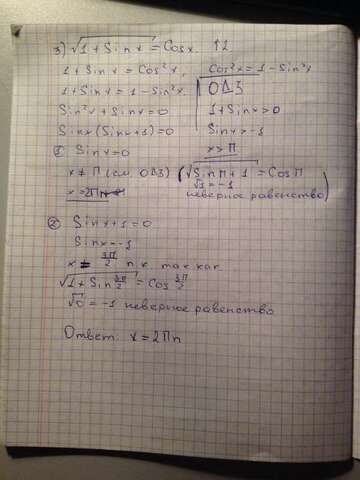 3) √1 + Sin x = Cos x. ↑2
1 + Sin x = Cos²x, Cos²x = 1 - Sin²x
1 + Sin x = 1 - Sin²x. ОДЗ
Sin²x + Sin x = 0 1 + Sin x > 0
Sin x (Sin x + 1) = 0 Sin x > -1
① Sin x = 0 x > π
x ≠ π (см. ОДЗ) (√Sin π + 1 = Cos π
√1 = -1
x = 2πn неверное равенство)
② Sin x + 1 = 0
Sin x = -1
x ≠ 3π/2 n к. так как
√1 + Sin 3π/2 = Cos 3π/2
√0 = -1 неверное равенство
Ответ: x = 2πn